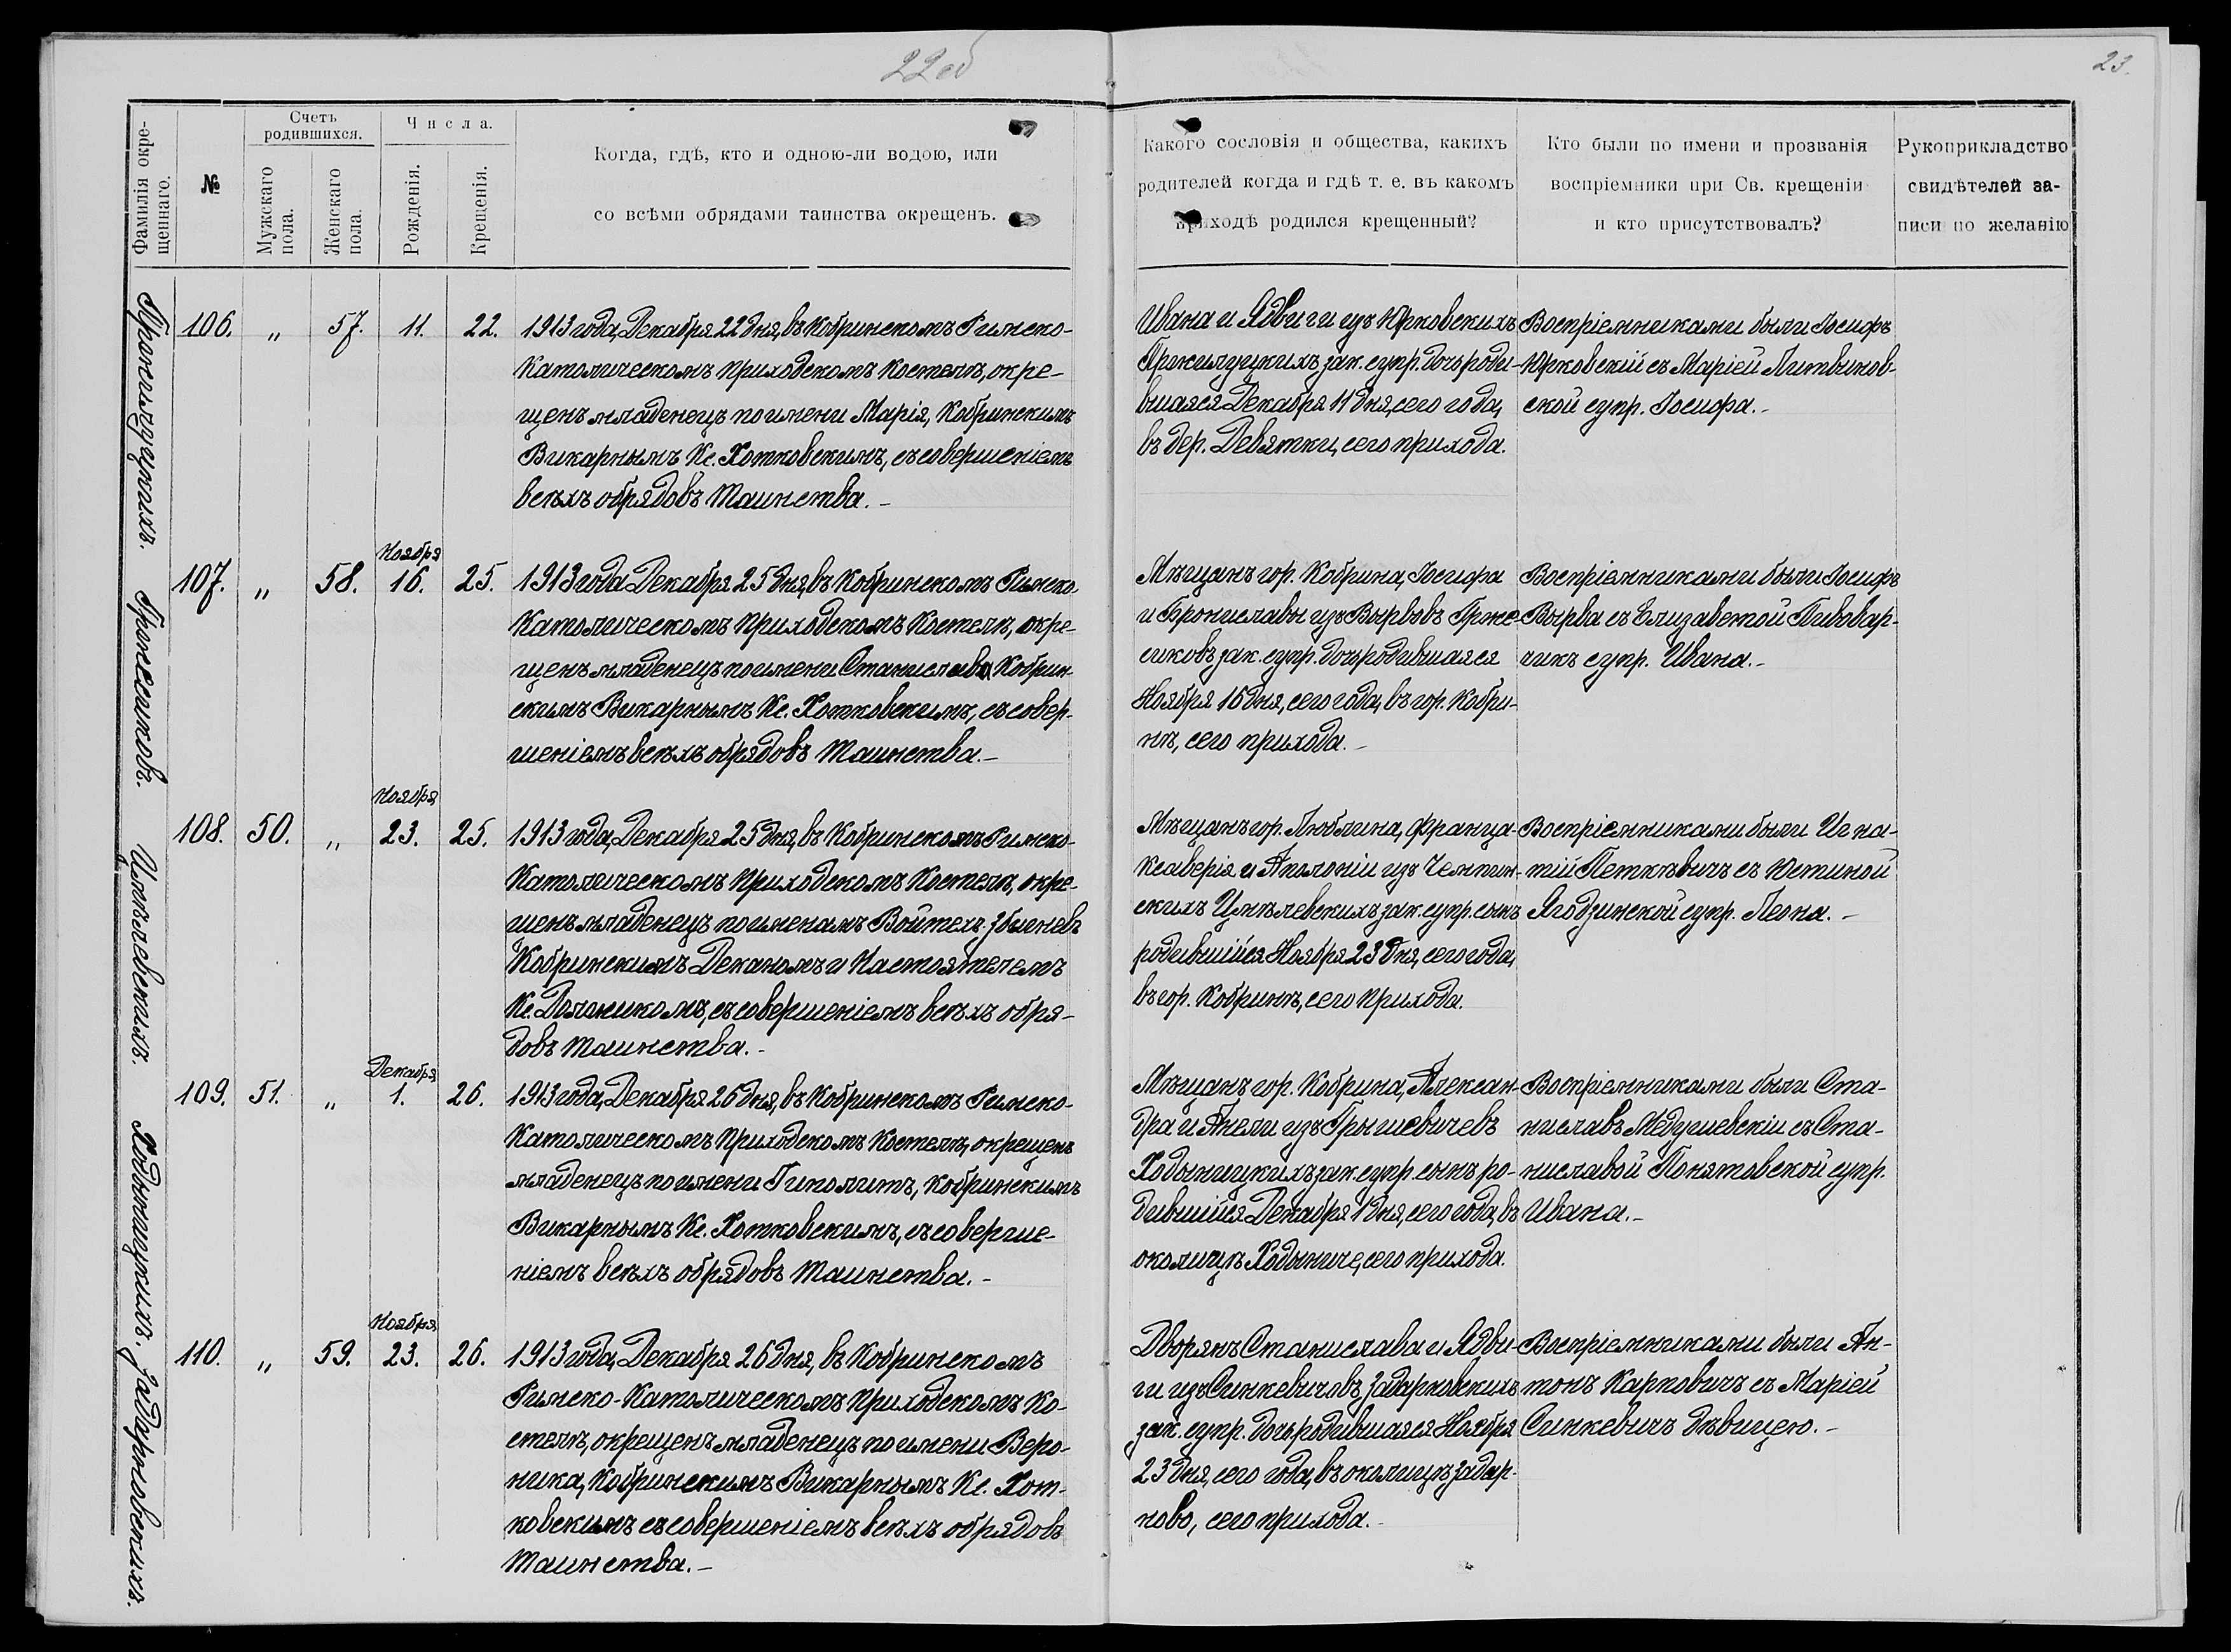 22об
23.
Фамилія окре-
щеннаго.
№
Счетъ
родившихся.
Мужскаго
пола.
Женскаго
пола.
Числа.
Рожденія.
Крещенія.
Когда, гдѣ, кто и одною-ли водою, или
со всѣми обрядами таинства окрещенъ.
Какого сословія и общества, какихъ
родителей когда и гдѣ т. е. въ какомъ
приходѣ родился крещенный?
Кто были по имени и прозванія
воспріемники при Св. крещеніи
и кто присутствовалъ?
Рукоприкладство
свидѣтелей за-
писи по желанію
Прокилудукихъ.
106. „ 57. 11. 22.
1913 года, Декабря 22 дня, въ Кобринскомъ Римско-
Католическомъ Приходскомъ Костелѣ, окре-
щенъ младенецъ по имени Марія, Кобринскимъ
Викарнымъ Кс. Хотковскимъ, съ совершеніемъ
всѣхъ обрядовъ Таинства.-
Ивана и Ядвиги изъ Юрковскихъ
зак. супр. дочь роди-
вшаяся Декабря 11 дня, сего года,
въ дер. Девятки, сего прихода.
Воспріемниками были Іосифъ
Юрковскій съ Маріей Литвинов-
ской супр. Іосифа.-
Гржесиковъ.
107. „ 58. Ноября 16. 25.
1913 года Декабря 25 дня, въ Кобринскомъ Римско-
Католическомъ Приходскомъ Костелѣ, окре-
щенъ младенецъ по имени Станислава Кобрин-
скимъ Викарнымъ Кс. Хотковскимъ, съ совер-
шеніемъ всѣхъ обрядовъ Таинства.-
Мѣщанъ гор. Кобрина, Іосифа
и Брониславы изъ Вырвовъ Грже-
сиковъ зак. супр. дочь родившаяся
Ноября 16 дня, сего года, въ гор. Кобри-
нѣ, сего прихода.-
Воспріемниками были Іосифъ
Вырва съ Елизаветой Пивовар-
чикъ супр. Ивана.-
Цмѣлевскихъ.
108. 50. „ Ноября 23. 25.
1913 года, Декабря 25 дня, въ Кобринскомъ Римско-
Католическомъ Приходскомъ Костелѣ, окре-
щенъ младенецъ по именамъ Войтехъ-Збигневъ
Кобринскимъ Деканомъ и Настоятелемъ
Кс. съ совершеніемъ всѣхъ обря-
довъ Таинства.-
Мѣщанъ гор. Люблина, Франца-
Ксаверія и Аполоніи изъ Чемпин-
скихъ Цмѣлевскихъ зак. супр. сынъ
родившійся Ноября 23 дня, сего года,
въ гор. Кобринѣ, сего прихода.
Воспріемниками были Игна-
тій Петкѣвичъ съ Юстиной
Ягодзинской супр. Леона.-
Ходыницкихъ.
109. 51. „ Декабря 1. 26.
1913 года, Декабря 26 дня, въ Кобринскомъ Римско-
Католическомъ Приходскомъ Костелѣ, окрещенъ
младенецъ по имени Гиполитъ, Кобринскимъ
Викарнымъ Кс. Хотковскимъ, съ соверше-
ніемъ всѣхъ обрядовъ Таинства.-
Мѣщанъ гор. Кобрина, Алексан-
дра и Анели изъ Грышевичевъ
Ходыницкихъ зак. супр. сынъ ро-
дившійся Декабря 1 дня, сего года, въ
околицѣ Ходыниче, сего прихода.
Воспріемниками были Ста-
ниславъ Медушевскій съ Ста-
ниславой Понятовской супр.
Ивана.-
Задарновскихъ.
110. „ 59. Ноября 23. 26.
1913 года, Декабря 26 дня, въ Кобринскомъ
Римско-Католическомъ Приходскомъ Ко-
стелѣ, окрещенъ младенецъ по имени Веро-
ника, Кобринскимъ Викарнымъ Кс. Хот-
ковскимъ съ совершеніемъ всѣхъ обрядовъ
Таинства.-
Дворянъ Станислава и Ядви-
ги изъ Синкевичовъ Задарновскихъ
зак. супр. дочь, родившаяся Ноября
23 дня, сего года, въ околицѣ Задар-
ново, сего прихода.-
Воспріемниками были Ан-
тонъ Карповичъ съ Маріей
Синкевичъ дѣвицею.-